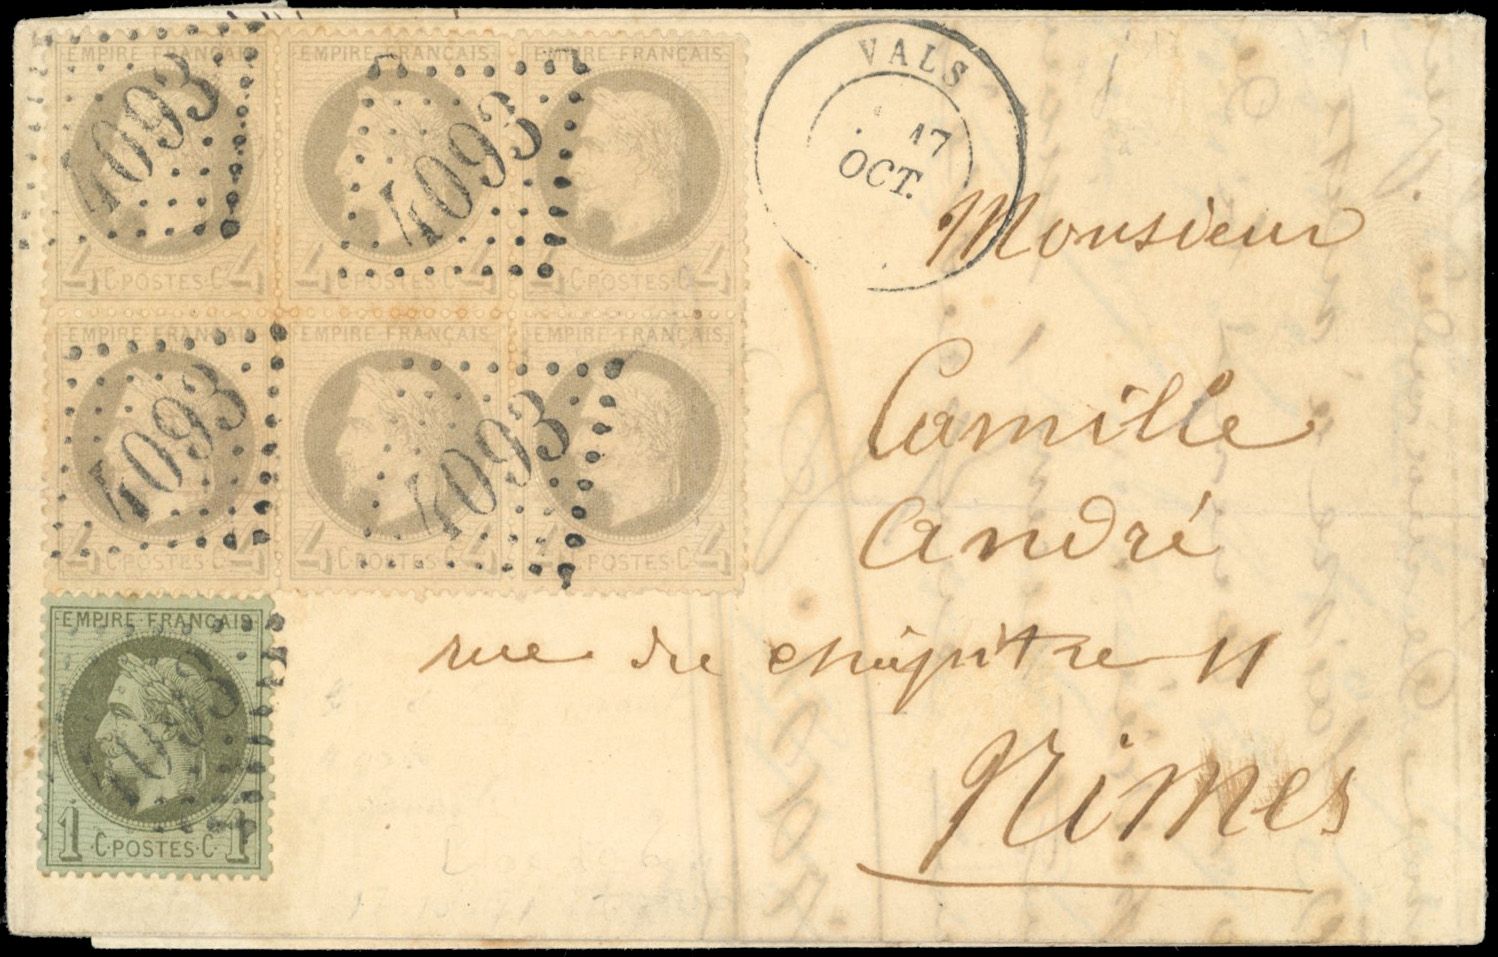 EMPIRE FRANÇAIS EMPIRE FRANÇAIS EMPIRE FRANÇAIS
4093 4093
4 C·POSTES·C 4 4 C·POSTES·C 4 4 C·POSTES·C 4
EMPIRE FRANÇAIS EMPIRE FRANÇAIS EMPIRE FRANÇAIS
4093 4093
4 C·POSTES·C 4 4 C·POSTES·C 4 4 C·POSTES·C 4
EMPIRE FRANÇAIS
4093
1 ·C·POSTES·C· 1
VALS
17
OCT.
Monsieur
Camille
André
rue du chapitre 11
Nimes